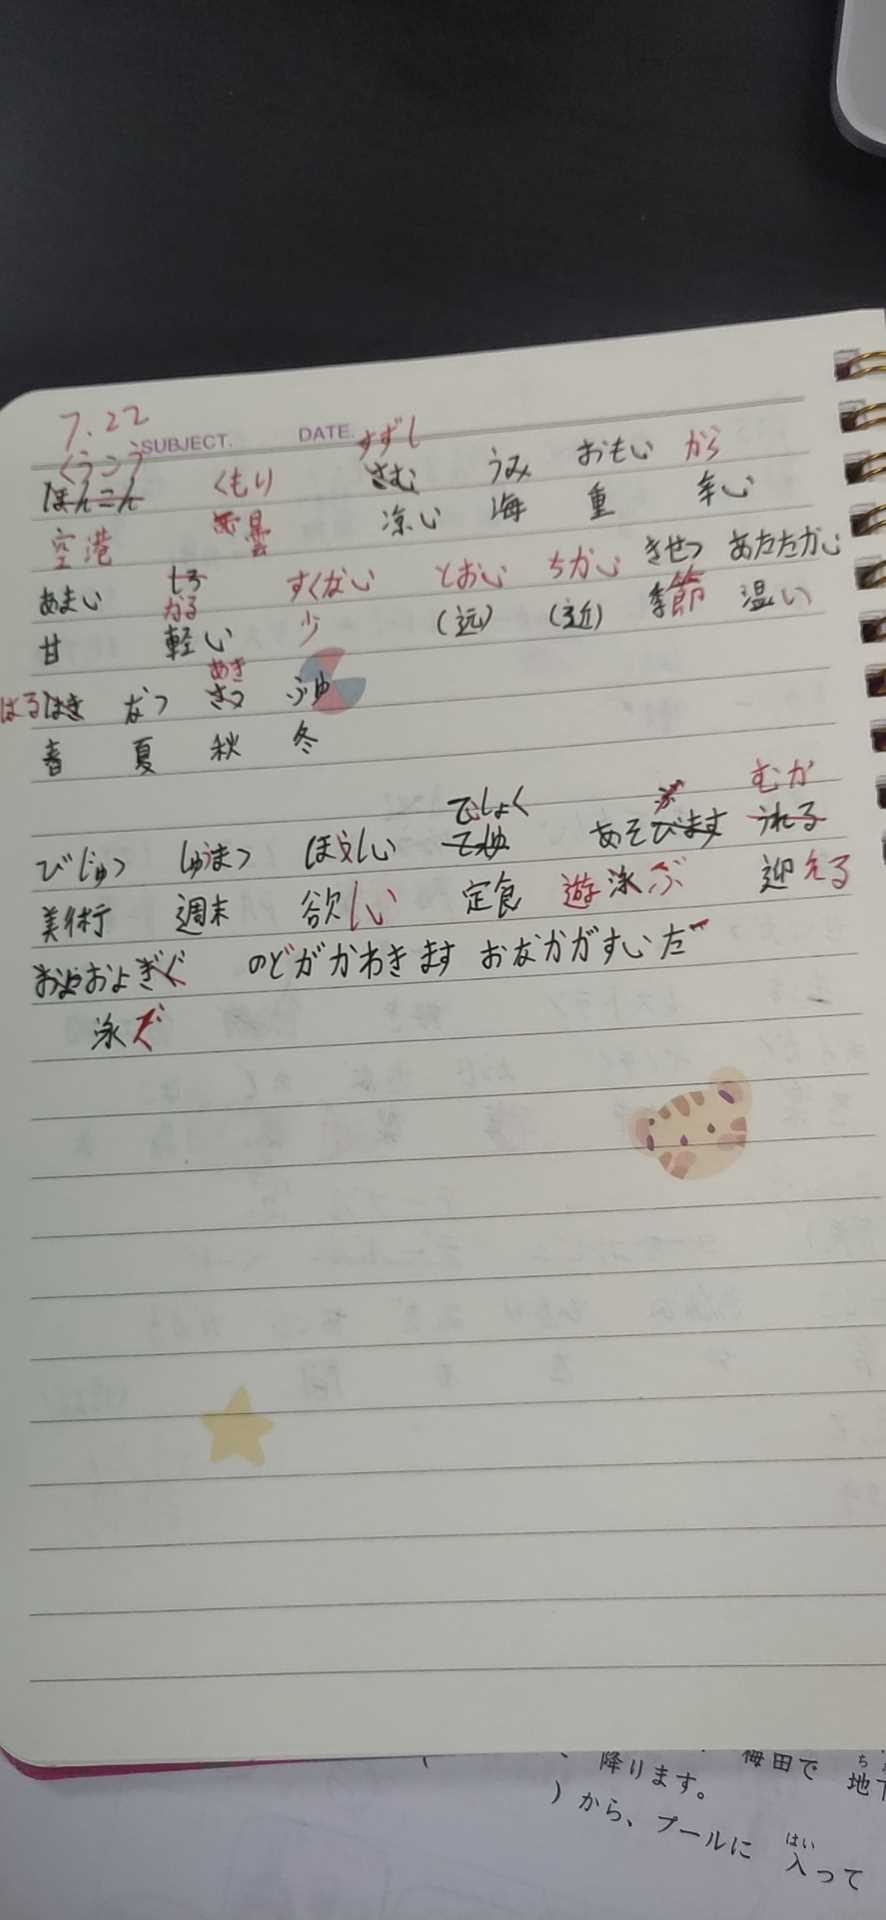 7.22
SUBJECT. DATE.
くうこう すずし
ほんこん くもり さむ うみ おもい から
空港 曇 凉い 海 重 辛い
あまい かる すくない とおい ちかい きせつ あたたかい
甘 軽い 少 (远) (近) 季節 温い
あき
はる はき なつ さつ ふゆ
春 夏 秋 冬
でしょく むか
びじゅつ しゅうまつ ほらしい あそびます うれる
美術 週末 欲しい 定食 遊泳ぶ 迎える
およぎぐ のどがかわきます おなかがすいだ
泳ぐ
降ります。 梅田で 地下
)から、プールに 入って
はい